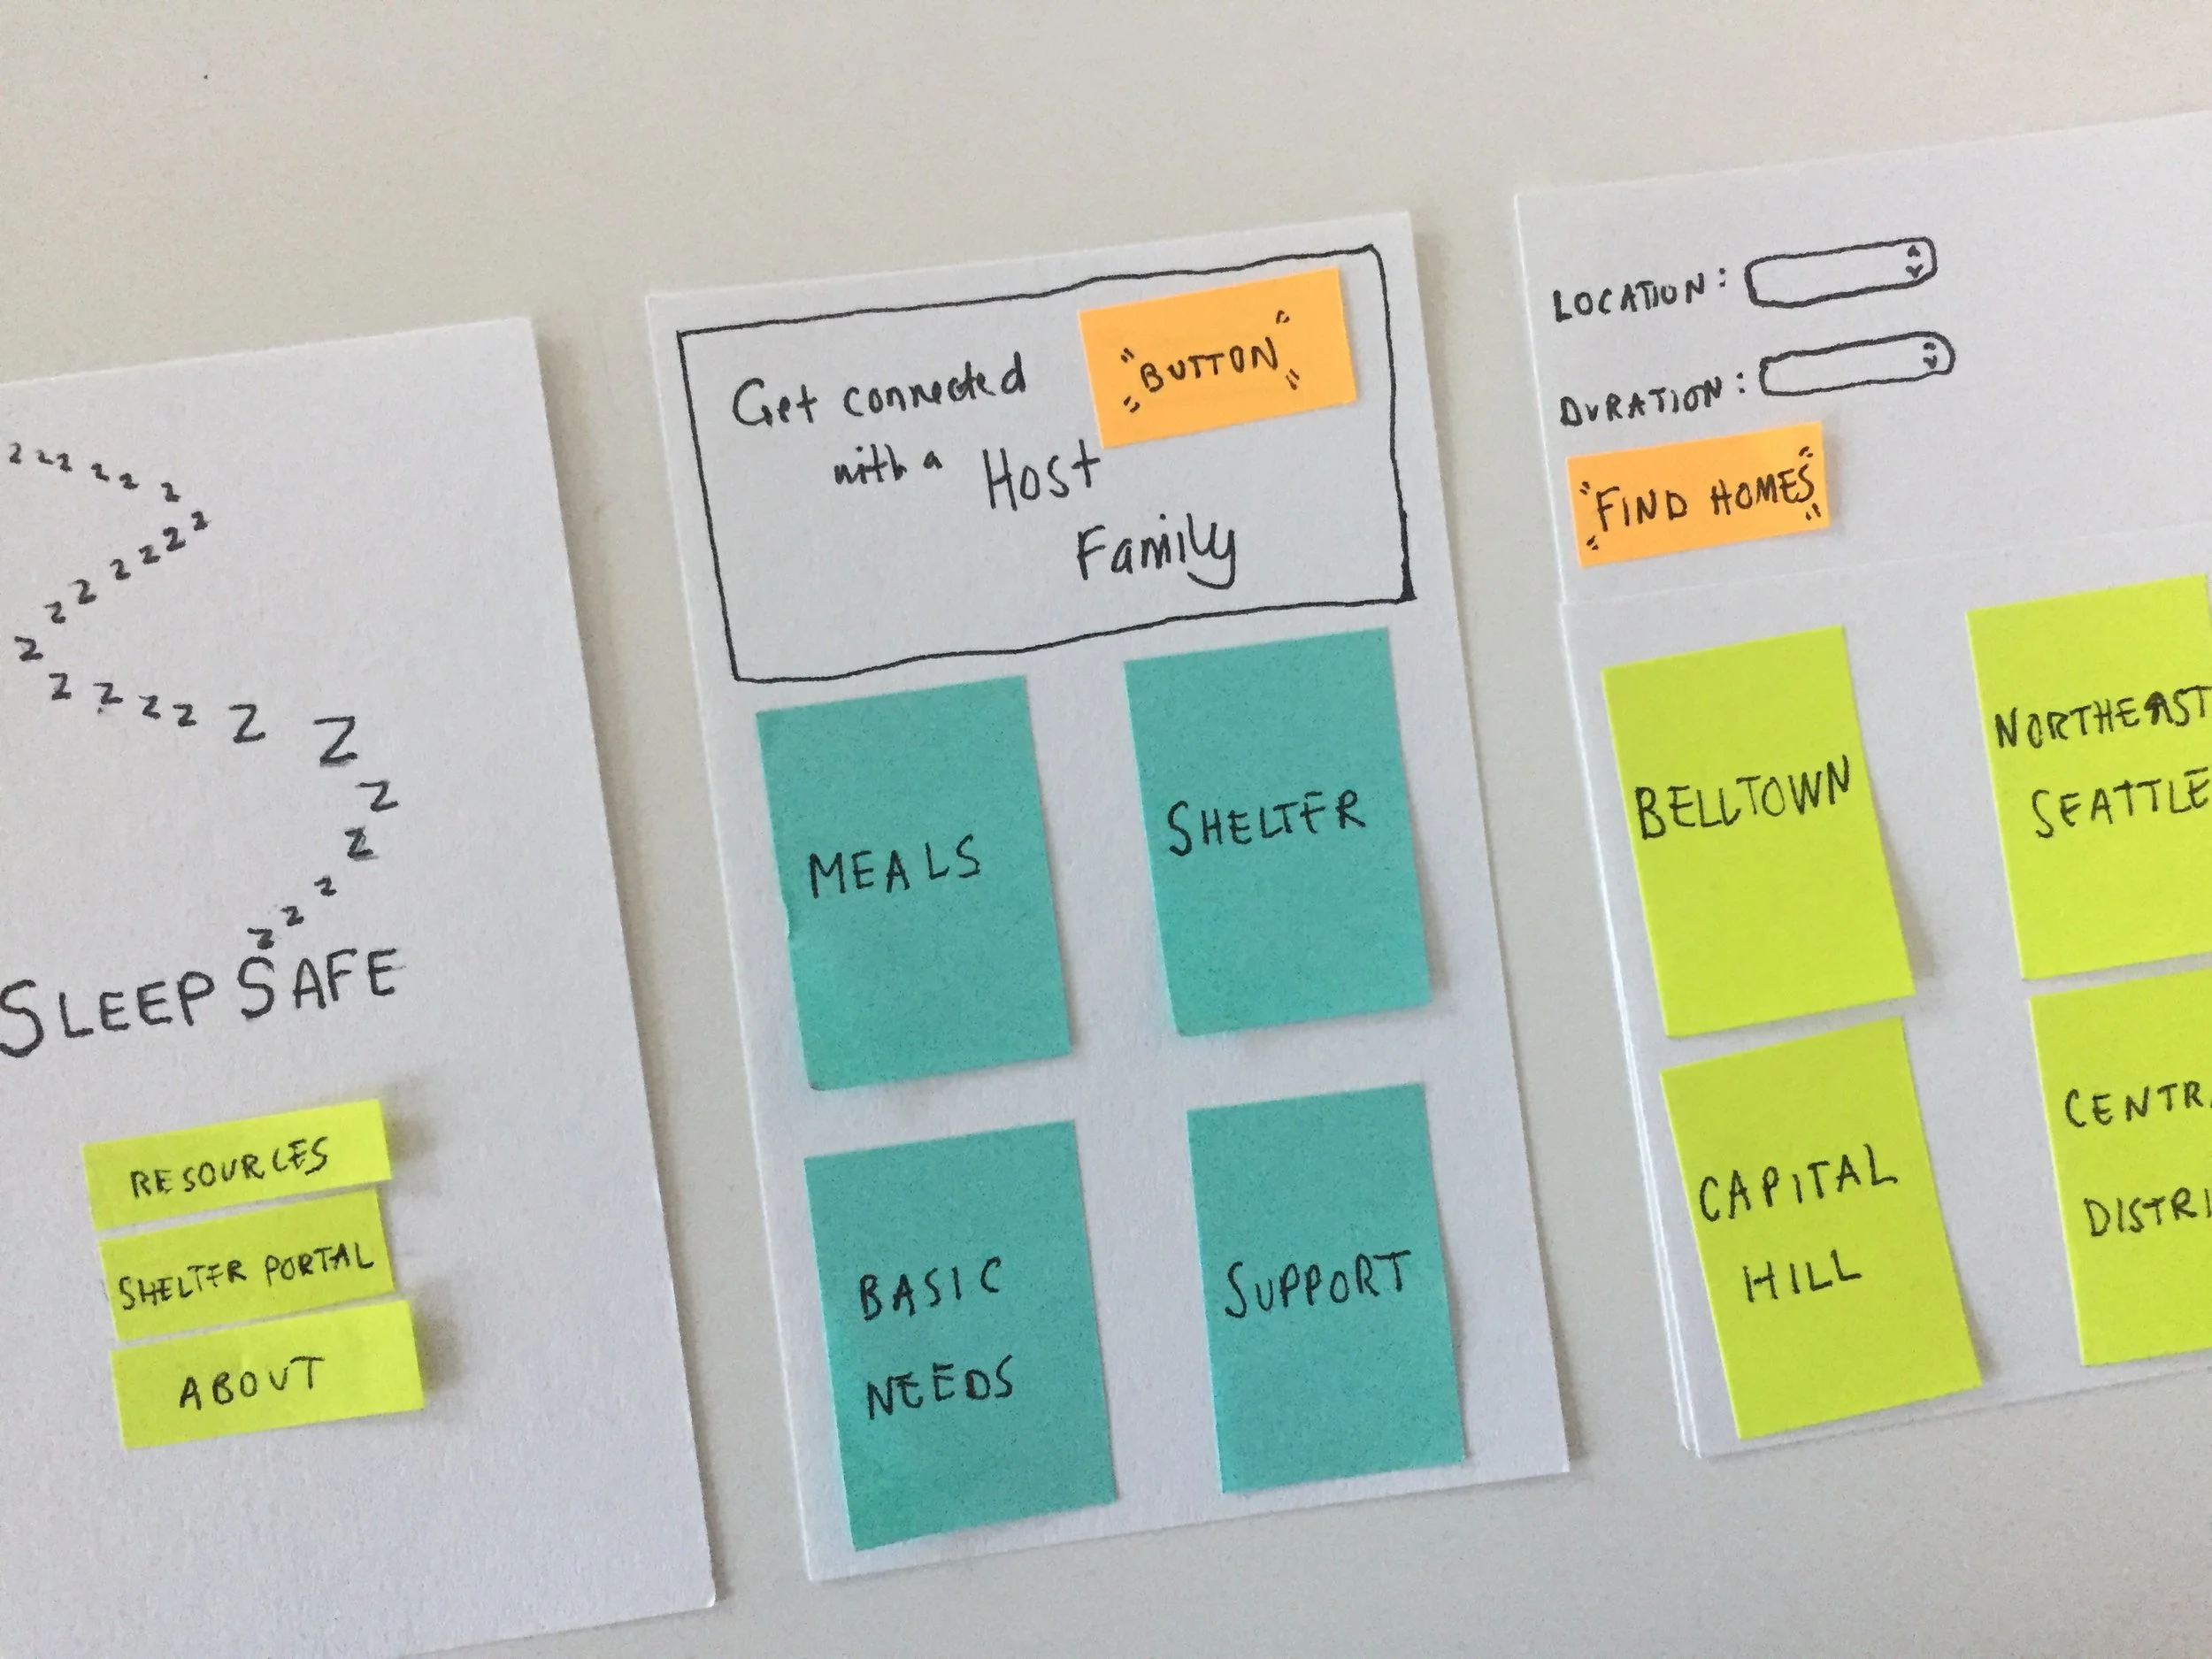 z z z z z z
z z z z z z z
z
z z z z z z
z
z
z
z z
SLEEP SAFE
RESOURCES
SHELTER PORTAL
ABOUT
Get connected
with a Host
Family
BUTTON
MEALS
SHELTER
BASIC
NEEDS
SUPPORT
LOCATION:
DURATION:
FIND HOMES
BELLTOWN
NORTHEAST
SEATTLE
CAPITAL
HILL
CENTR
DISTRI